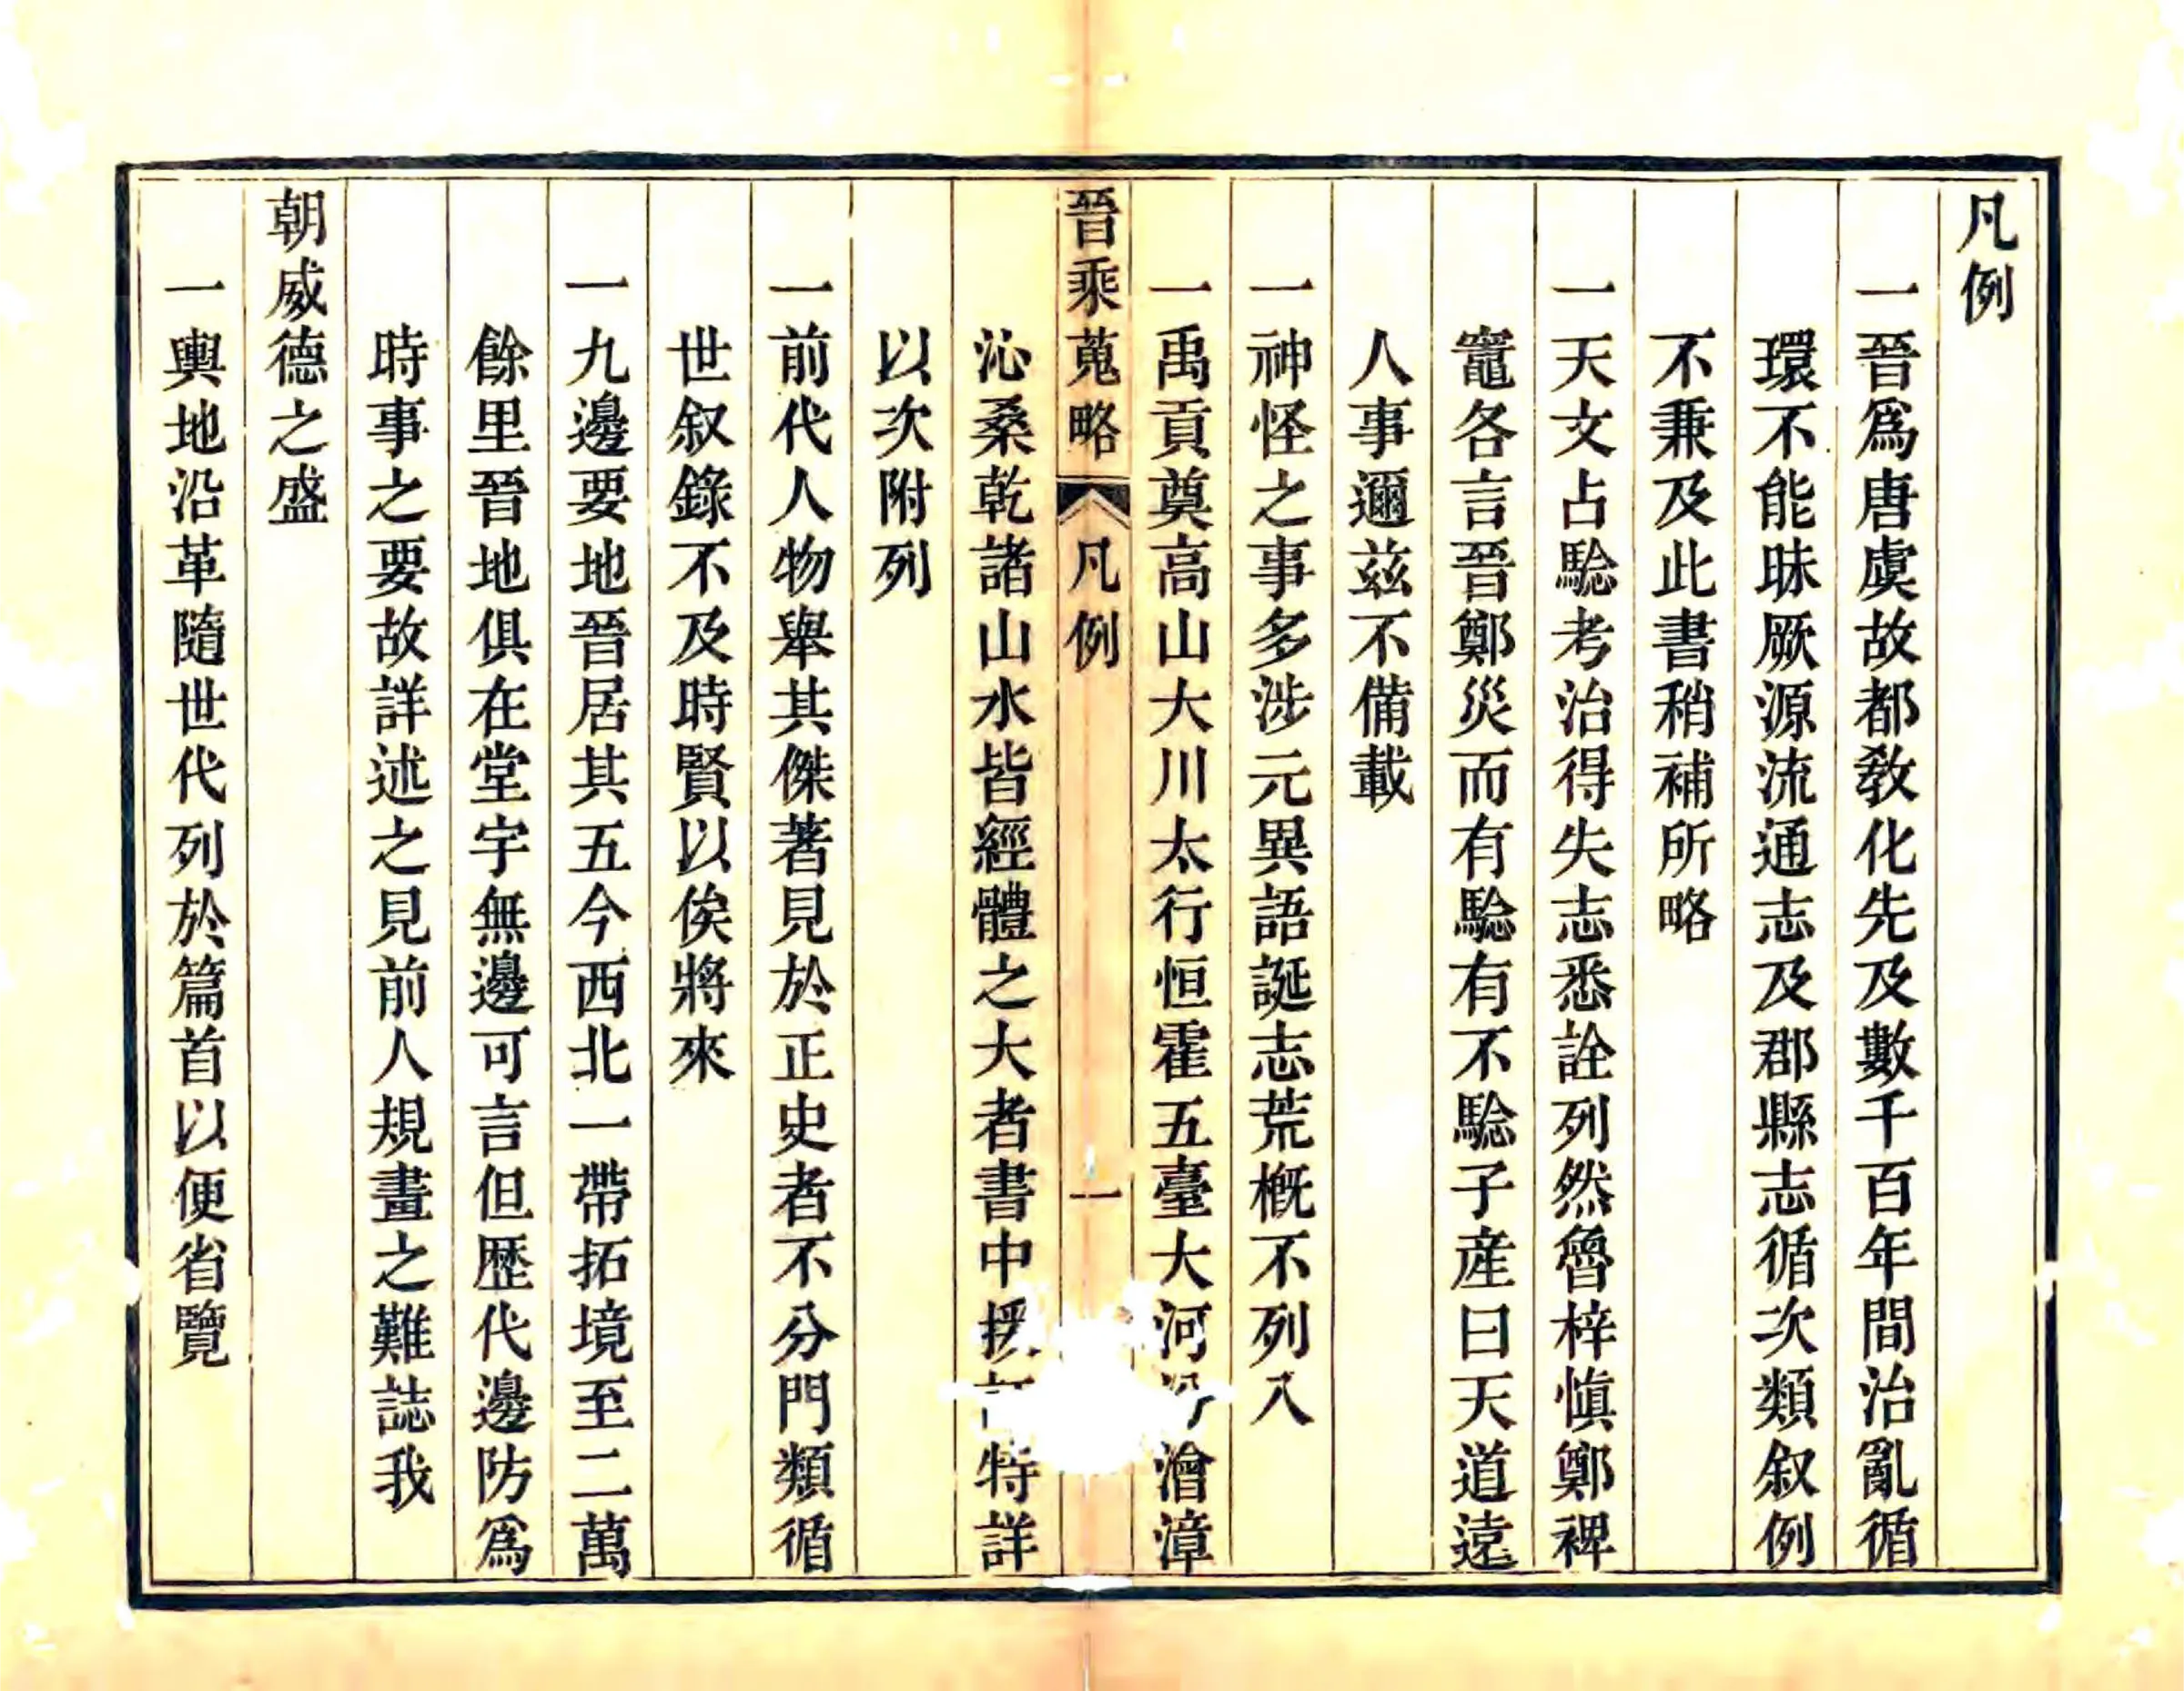 凡例
一晉爲唐虞故都教化先及數千百年間治亂循
環不能昧厥源流通志及郡縣志循次類叙例
不兼及此書稍補所略
一天文占騐考治得失志悉詮列然魯梓愼鄭裨
竈各言晉鄭災而有騐有不騐子産曰天道遠
人事邇茲不備載
一神怪之事多涉元異語誕志荒槪不列入
一禹貢奠高山大川太行恒霍五臺大河澮漳
晉乘蒐略 凡例 一
沁桑乾諸山水皆經體之大者書中特詳
以次附列
一前代人物舉其傑著見於正史者不分門類循
世叙錄不及時賢以俟將來
一九邊要地晉居其五今西北一帶拓境至二萬
餘里晉地俱在堂宇無邊可言但歷代邊防爲
時事之要故詳述之見前人規畫之難誌我
朝威德之盛
一輿地沿革隨世代列於篇首以便省覽